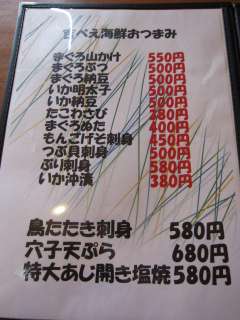 海鮮おつまみ
まぐろ山かけ 550円
まぐろぶつ 500円
まぐろ納豆 500円
いか明太子 500円
いか納豆 500円
たこわさび 380円
まぐろぬた 400円
もんごげそ刺身 450円
つぶ貝刺身 500円
ぶり刺身 580円
いか沖漬 380円
鳥たたき刺身 580円
穴子天ぷら 680円
特大あじ開き塩焼 580円